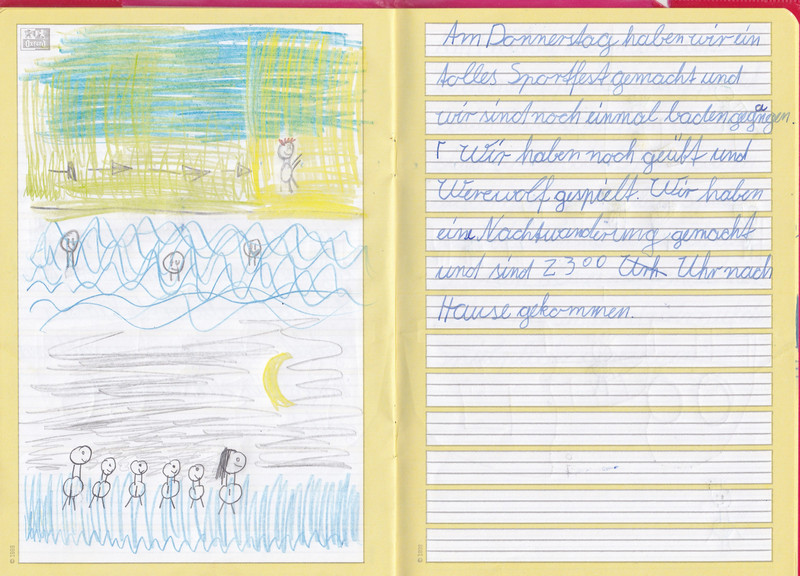 Am Donnerstag haben wir ein
tolles Sportfest gemacht und
wir sind noch einmal baden gegangen.
Γ Wir haben noch geübt und
Werewolf gespielt. Wir haben
eine Nachtwanderung gemacht
und sind 23⁰⁰ Uhr nach
Hause gekommen.